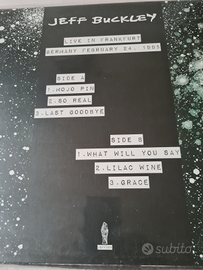 JEFF BUCKLEY
LIVE IN FRANKFURT
GERMANY FEBRUARY 24, 1995
SIDE A
1.MOJO PIN
2.SO REAL
3.LAST GOODBYE
SIDE B
1.WHAT WILL YOU SAY
2.LILAC WINE
3.GRACE
subito